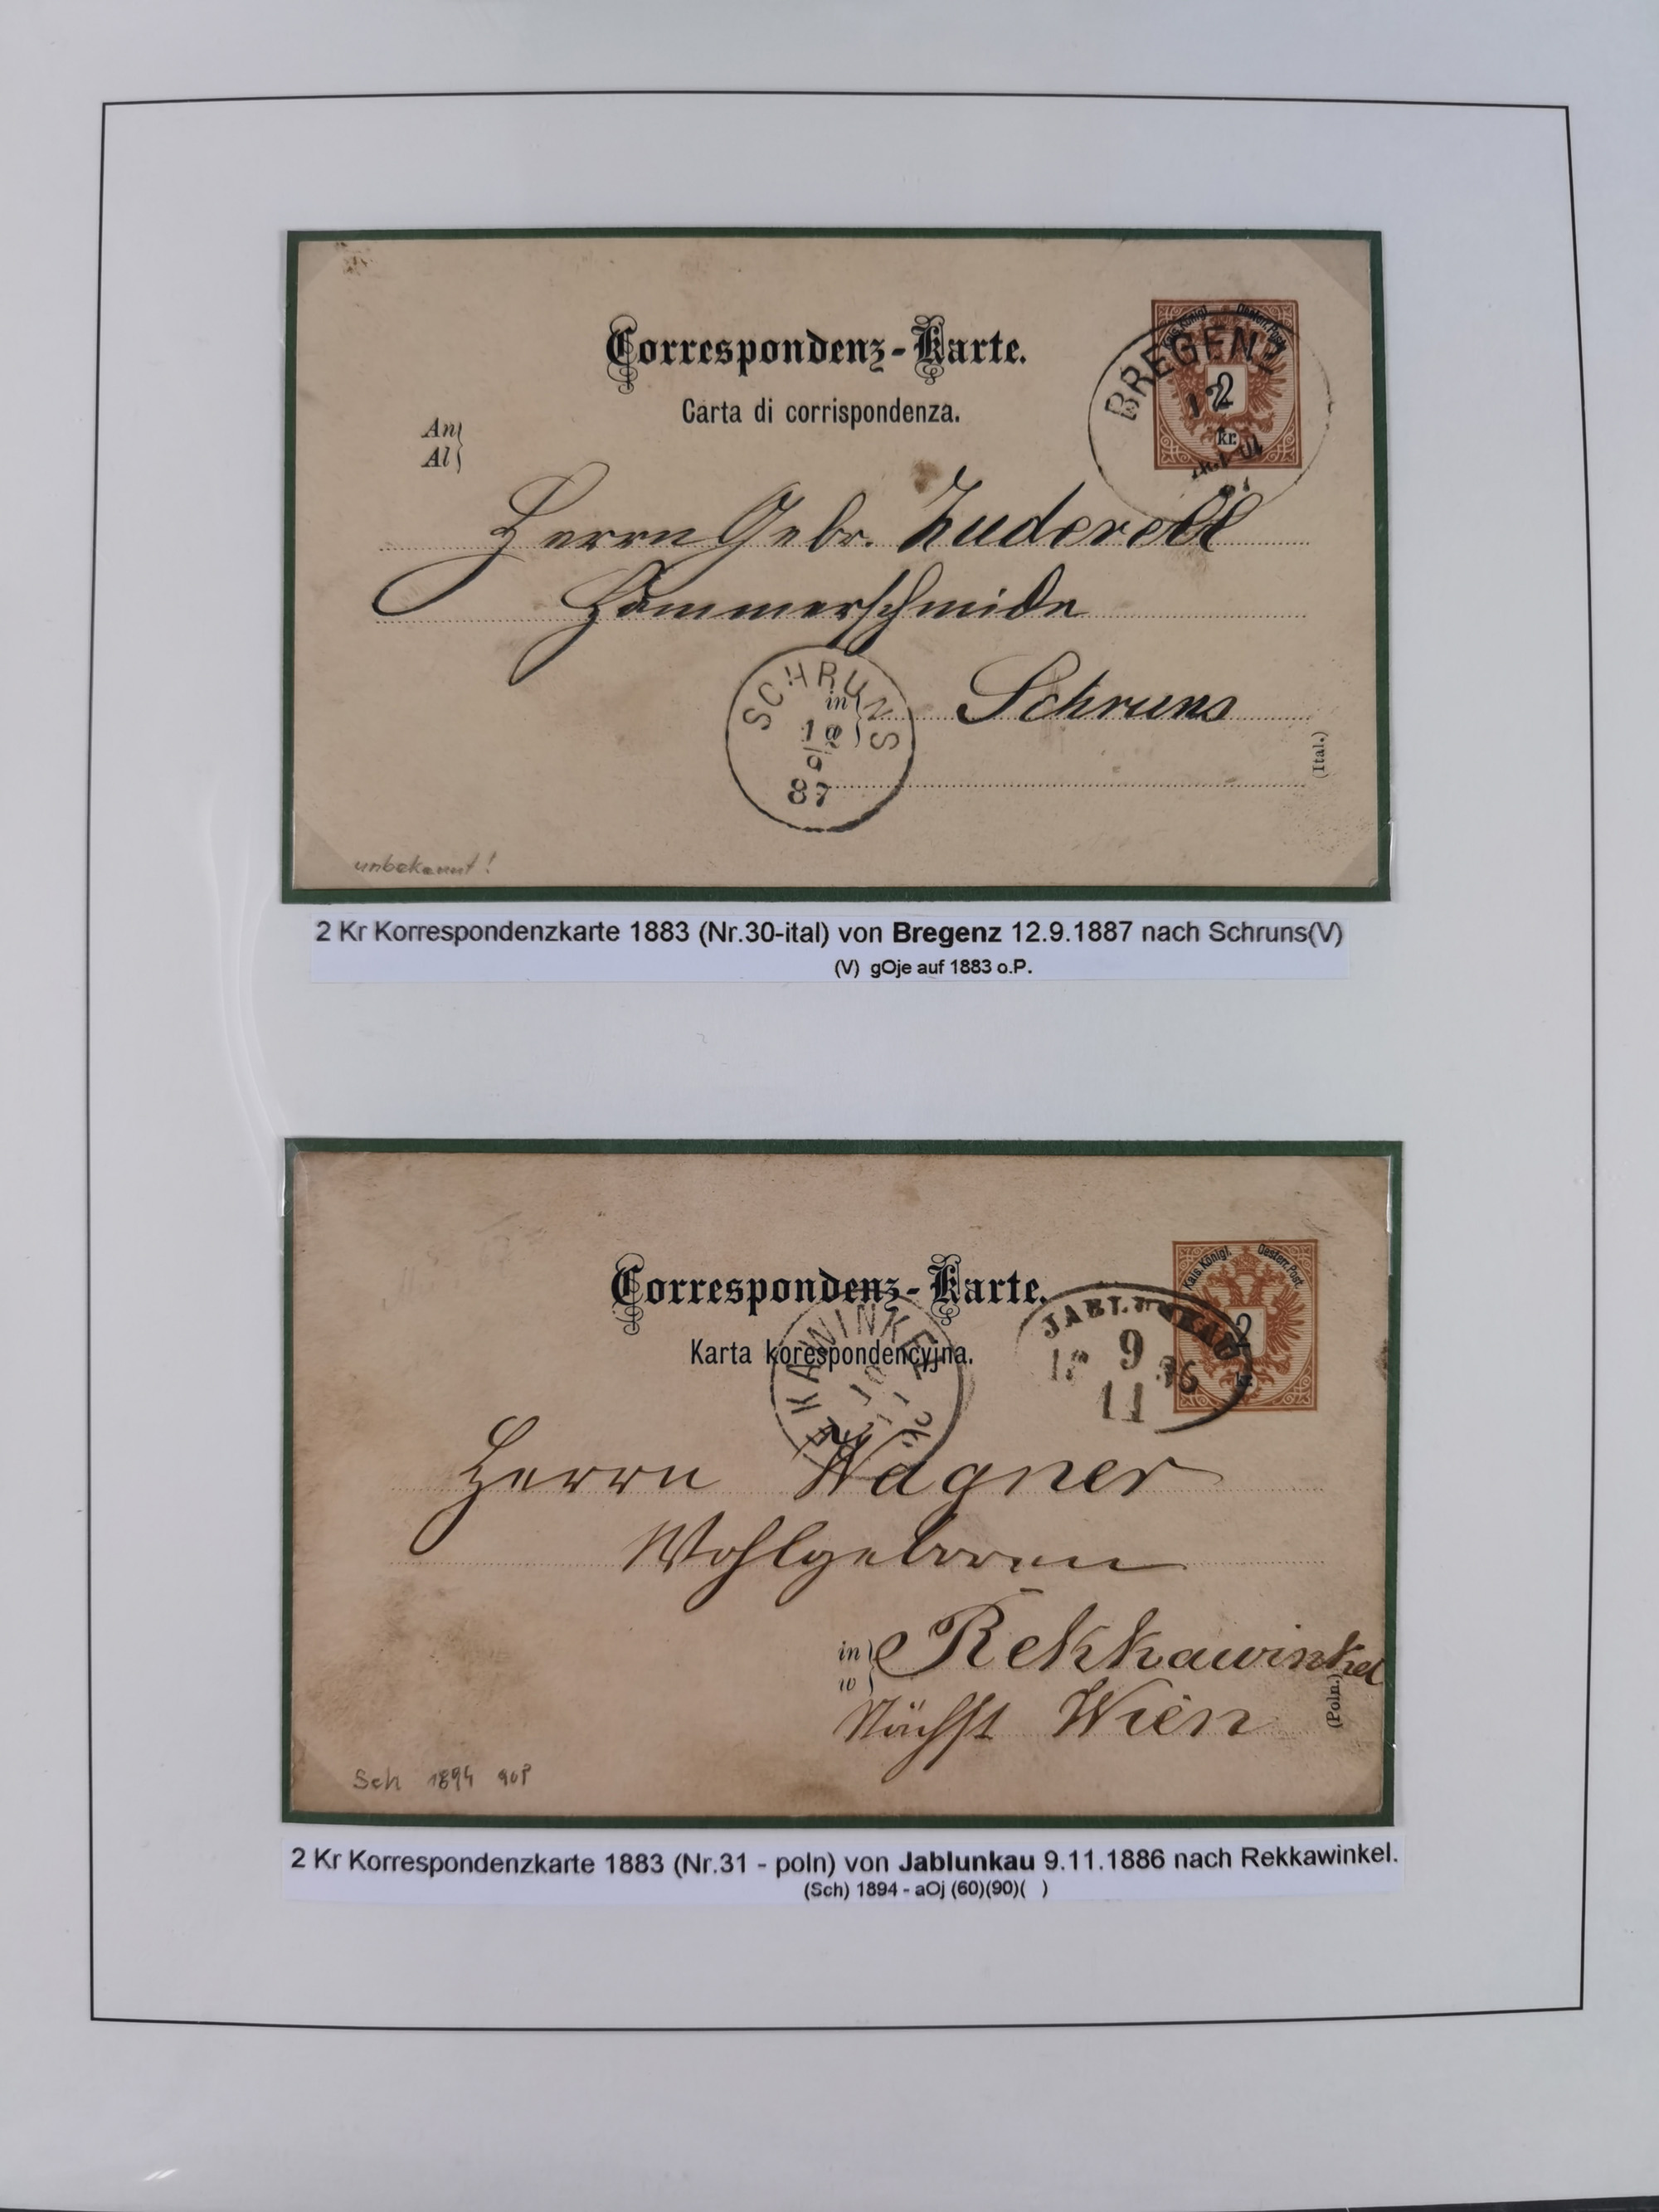 Correspondenz-Karte.
Carta di corrispondenza.
Kais. Königl. Oesterr. Post.
2
kr.
BREGENZ
12
An
Al
Herrn Gebr. Zuderell
Hammerschmiede
SCHRUNS
12
9
87
in
Schruns
(Ital.)
unbekannt!
2 Kr Korrespondenzkarte 1883 (Nr.30-ital) von Bregenz 12.9.1887 nach Schruns(V)
(V) gOje auf 1883 o.P.
Correspondenz-Karte.
Karta korespondencyjna.
Kais. Königl. Oesterr. Post.
2
kr.
JABLUNKAU
18 9 86
11
REKAWINKEL
10
11
Herrn Wagner
Wohlgeboren
in
w
Rekkawinkel
Nächst Wien
(Poln.)
Sch 1894
2 Kr Korrespondenzkarte 1883 (Nr.31 - poln) von Jablunkau 9.11.1886 nach Rekkawinkel.
(Sch) 1894 - aOj (60)(90)( )